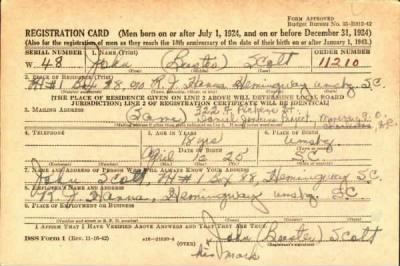 Form Approved
Budget Bureau No. 33-R012-42
REGISTRATION CARD (Men born on or after July 1, 1924, and on or before December 31, 1924)
(Also for the registration of men as they reach the 18th anniversary of the date of their birth on or after January 1, 1943.)
SERIAL NUMBER 1. NAME (Print) ORDER NUMBER
W 48 John (Buster) Scott 11210
(First) (Middle) (Last)
2. PLACE OF RESIDENCE (Print)
Rt #1 Box 98, on R. J. Hanna Hemingway Wmsbg S.C.
[THE PLACE OF RESIDENCE GIVEN ON LINE 2 ABOVE WILL DETERMINE LOCAL BOARD
JURISDICTION; LINE 2 OF REGISTRATION CERTIFICATE WILL BE IDENTICAL]
3. MAILING ADDRESS
Same
4. TELEPHONE 5. AGE IN YEARS 6. PLACE OF BIRTH
18 yrs Wmsbg
DATE OF BIRTH
April 25 S.C.
7. NAME AND ADDRESS OF PERSON WHO WILL ALWAYS KNOW YOUR ADDRESS
John Scott, Rt #1 Box 98, Hemingway S.C.
8. EMPLOYER'S NAME AND ADDRESS
R. J. Hanna, Hemingway Wmsbg S.C.
9. PLACE OF EMPLOYMENT OR BUSINESS
I AFFIRM THAT I HAVE VERIFIED ABOVE ANSWERS AND THAT THEY ARE TRUE.
DSS Form 1 (Rev. 11-16-42)
John (Buster) Scott
his mark